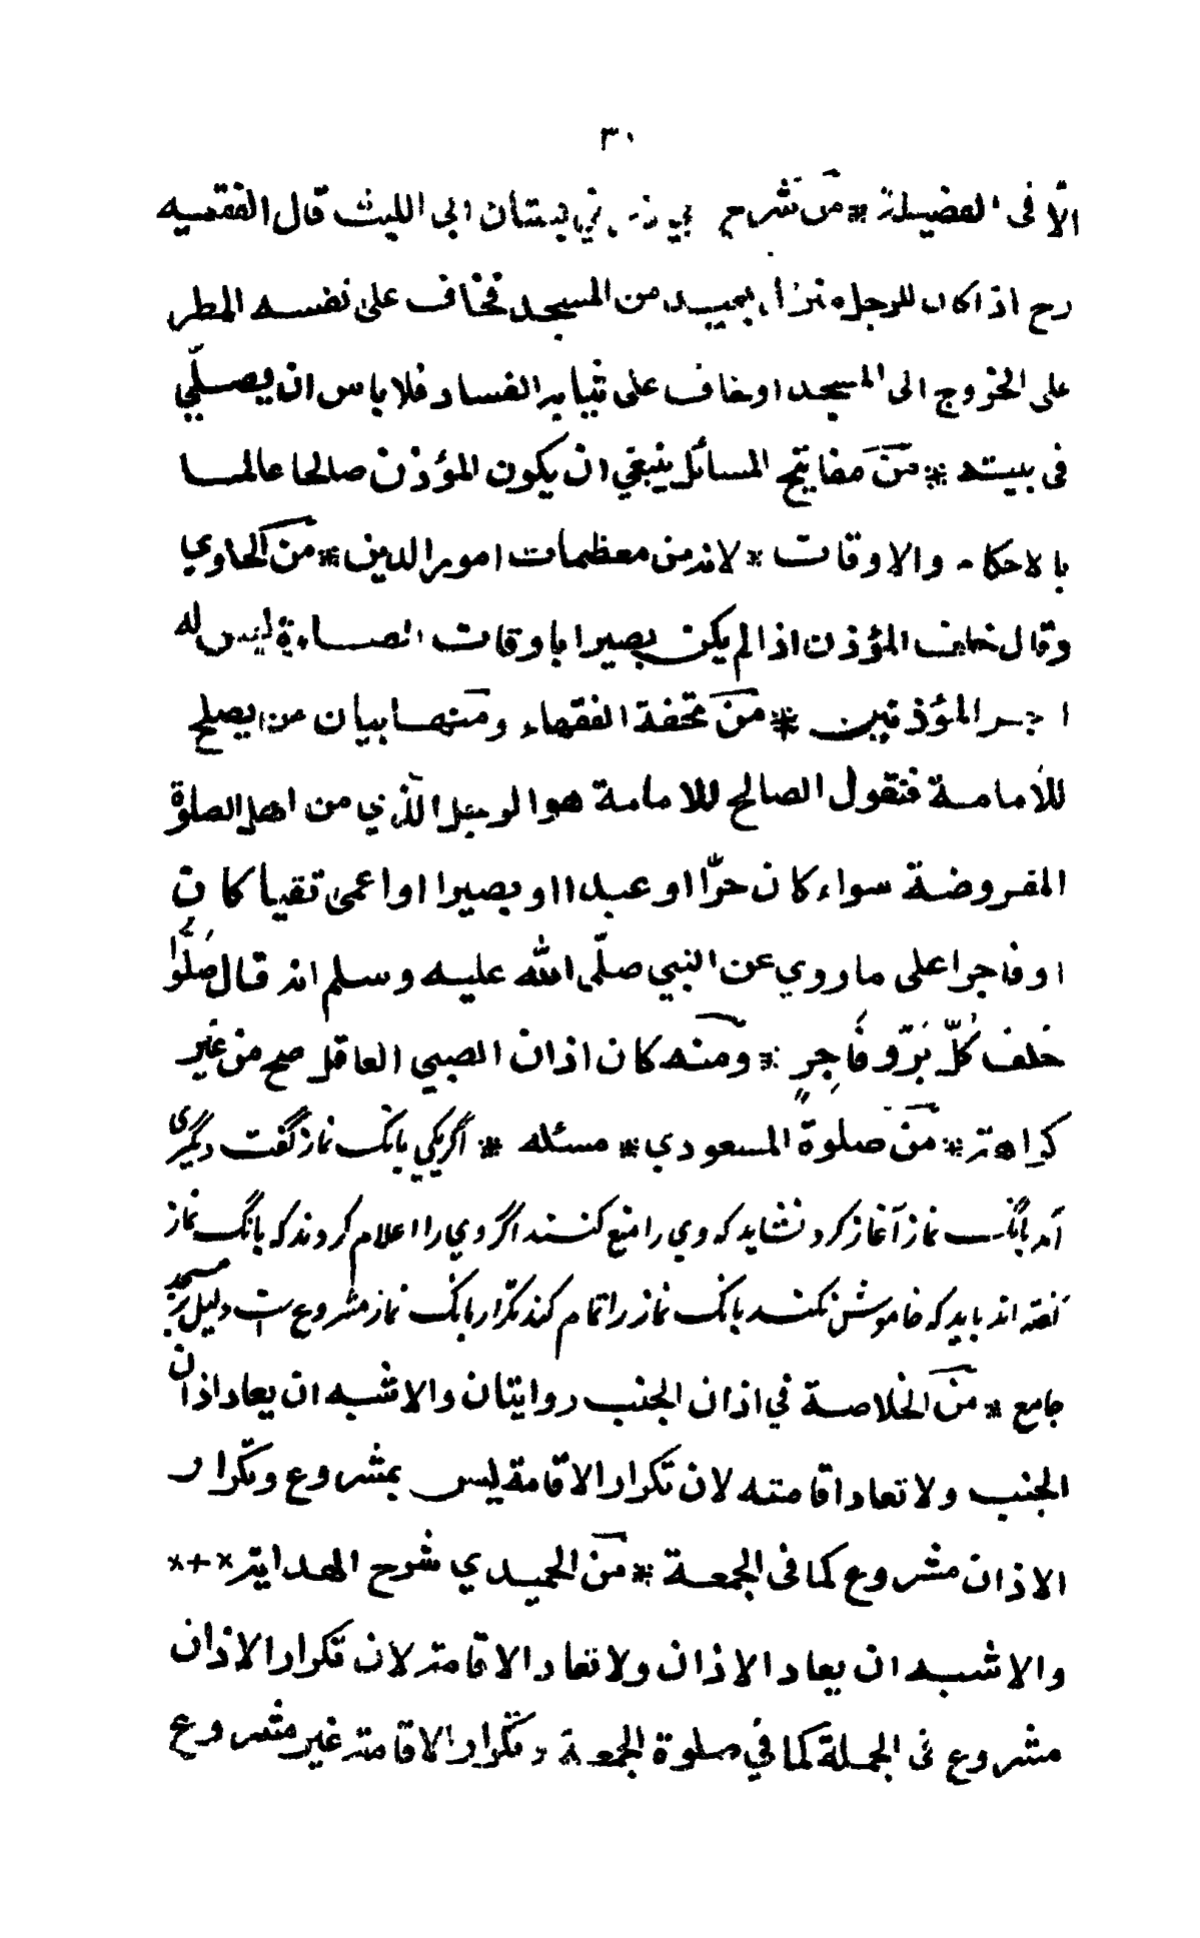 ٣٠
الّا فى الفضيلة * من شرح بستان ابى الليث قال الفقيه
رح اذا كان للرجل منزل بعيد من المسجد فخاف على نفسه المطر
على الخروج الى المسجد او خاف على ثيابه الفساد فلا باس ان يصلّي
فى بيته * من مفاتيح المسائل ينبغي ان يكون المؤذن صالحا عالما
بالاحكام والاوقات * لانه من معظمات امور الدين * من الحاوي
وقال خلف المؤذن اذا لم يكن بصيرا باوقات الصلوة ليس له
اجر المؤذنين * من تحفة الفقهاء ومنها بيان من يصلح
للامامة فنقول الصالح للامامة هو الرجل الذي من اهل الصلوة
المفروضة سواء كان حرّا او عبدا او بصيرا او اعمى تقيا كان
او فاجرا على ما روي عن النبي صلّى الله عليه وسلم انه قال صَلُّوا
خلف كُلِّ بَرٍّ و فَاجِرٍ * ومنه كان اذان الصبي العاقل صح من غير
كراهة * من صلوة المسعودي * مسئله * اگر يكي بانگ نماز گفت ديگرى
آمد بانگ نماز آغاز كرد نشايد كه وي را منع كنند اگر وي را اعلام كردند كه بانگ نماز
گفته اند بايد كه خاموش نكند بانگ نماز را تمام كند تكرار بانگ نماز مشروع ست دليل بر مسجد
جامع * من الخلاصة في اذان الجنب روايتان والاشبه ان يعاد اذان
الجنب ولا تعاد اقامته لان تكرار الاقامة ليس بمشروع وتكرار
الاذان مشروع كما فى الجمعة * من الحميدي شرح الهداية ×+×
والاشبه ان يعاد الاذان ولا تعاد الاقامة لان تكرار الاذان
مشروع فى الجملة كما في صلوة الجمعة وتكرار الاقامة غير مشروع